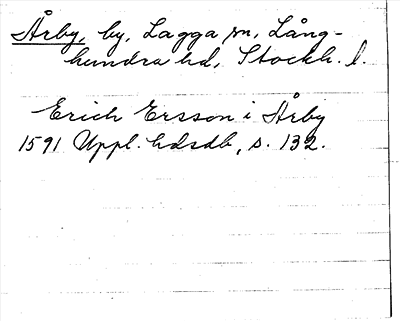 Årby, by, Lagga sn, Lång-
hundra hd, Stockh. l.
Erich Ersson i Årby
1591 Uppl. hdsdb, s. 132.